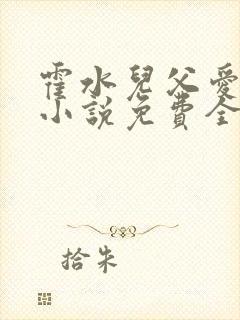 霍水兒父愛
小說免費全
拾朱